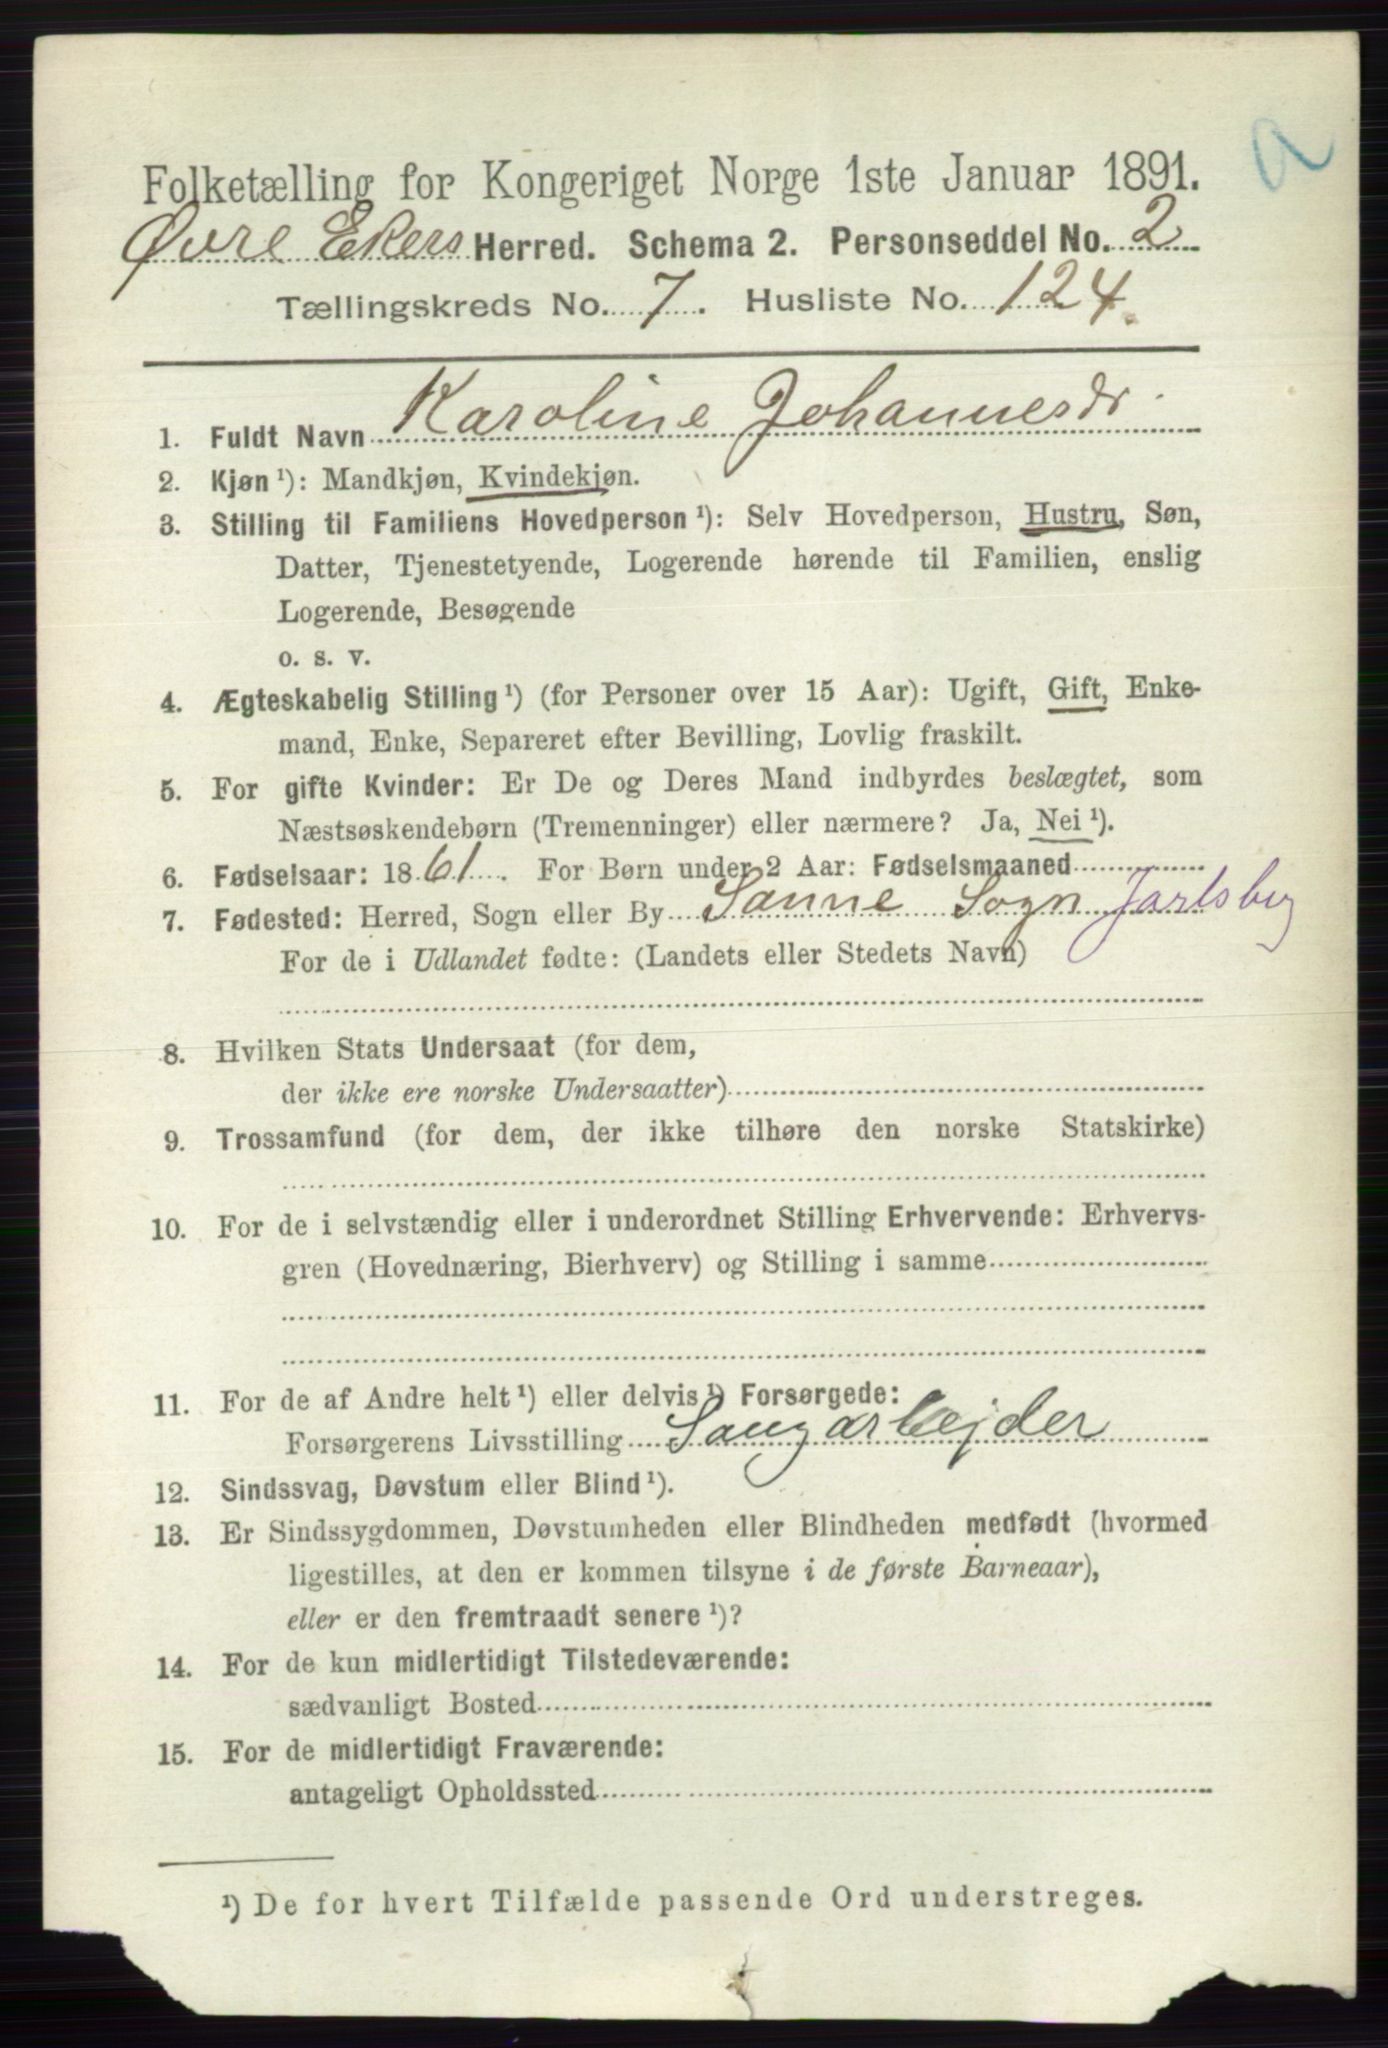 a
Folketælling for Kongeriget Norge 1ste Januar 1891.
Øvre Ekers Herred. Schema 2. Personseddel No. 2
Tællingskreds No. 7. Husliste No. 124.
1. Fuldt Navn Karoline Johannesdr
2. Kjøn ¹): Mandkjøn, Kvindekjøn.
3. Stilling til Familiens Hovedperson ¹): Selv Hovedperson, Hustru, Søn,
Datter, Tjenestetyende, Logerende hørende til Familien, enslig
Logerende, Besøgende
o. s. v.
4. Ægteskabelig Stilling ¹) (for Personer over 15 Aar): Ugift, Gift, Enke-
mand, Enke, Separeret efter Bevilling, Lovlig fraskilt.
5. For gifte Kvinder: Er De og Deres Mand indbyrdes beslægtet, som
Næstsøskendebørn (Tremenninger) eller nærmere? Ja, Nei ¹).
6. Fødselsaar: 1861. For Børn under 2 Aar: Fødselsmaaned
7. Fødested: Herred, Sogn eller By Sanne Sogn Jarlsberg
For de i Udlandet fødte: (Landets eller Stedets Navn)
8. Hvilken Stats Undersaat (for dem,
der ikke ere norske Undersaatter)
9. Trossamfund (for dem, der ikke tilhøre den norske Statskirke)
10. For de i selvstændig eller i underordnet Stilling Erhvervende: Erhvervs-
gren (Hovednæring, Bierhverv) og Stilling i samme
11. For de af Andre helt ¹) eller delvis ¹) Forsørgede:
Forsørgerens Livsstilling Saugarbejder
12. Sindssvag, Døvstum eller Blind ¹).
13. Er Sindssygdommen, Døvstumheden eller Blindheden medfødt (hvormed
ligestilles, at den er kommen tilsyne i de første Barneaar),
eller er den fremtraadt senere ¹)?
14. For de kun midlertidigt Tilstedeværende:
sædvanligt Bosted
15. For de midlertidigt Fraværende:
antageligt Opholdssted
¹) De for hvert Tilfælde passende Ord understreges.